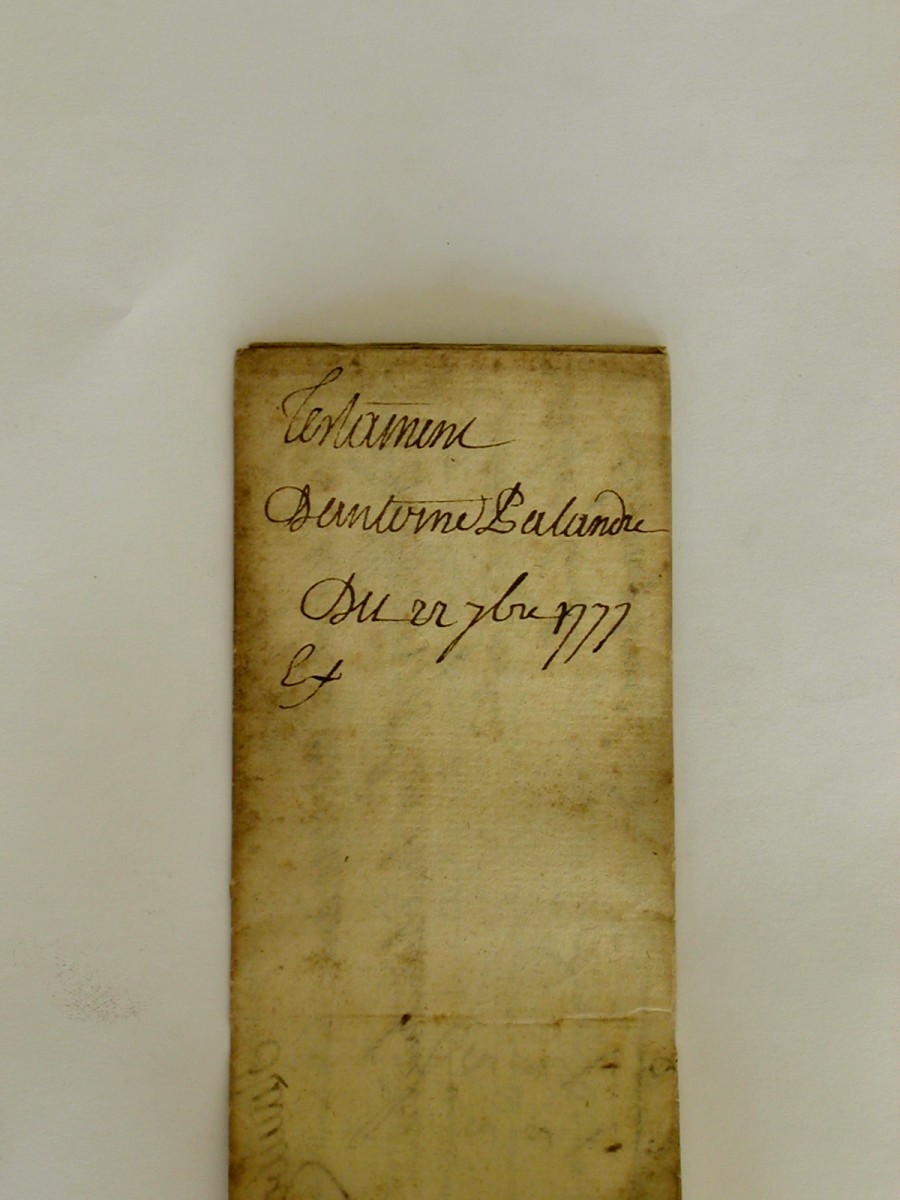 Testament
D'antoine Palandre
Du 22 7bre 1777
Ex